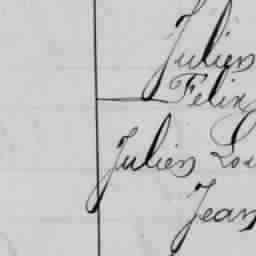 Julien
Felix
Julien Lou
Jean